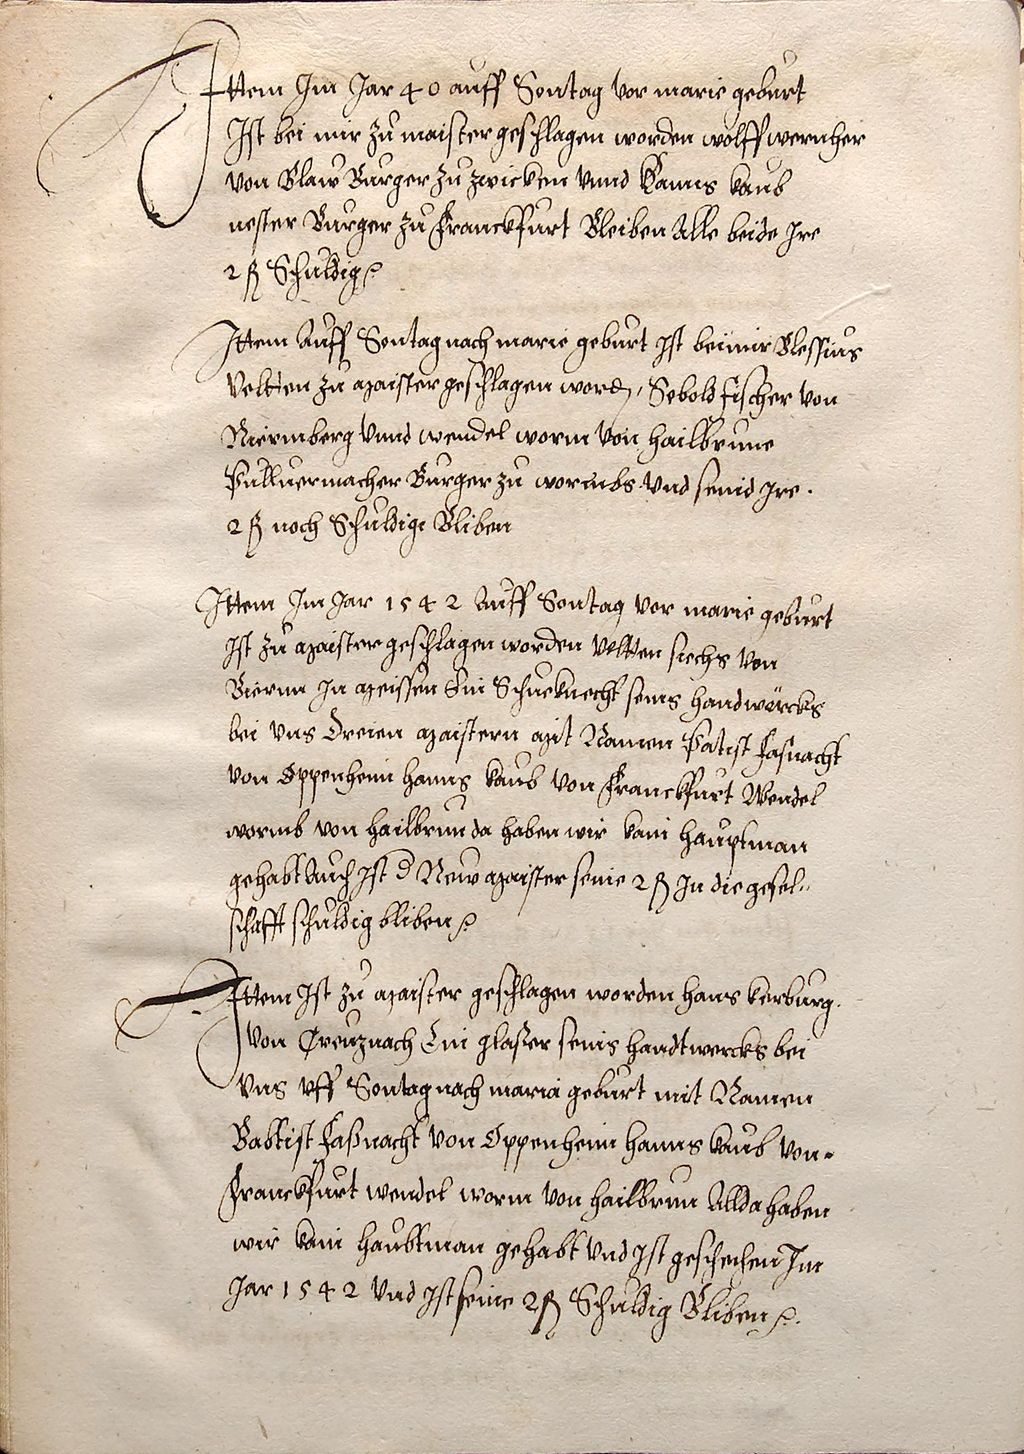 Ittem Im Jar 40 auff Sontag vor marie geburt
Ist bei mir zu maister geschlagen worden wolff wernher
von Blaw Burger zu zwicken vnnd Hanns kaub
nester Burger zu Franckfurt Bleiben Alle beide Ire
2 ß Schuldig
Ittem Auff Sontag nach marie geburt Ist bei mir Blessius
Veltten zu maister geschlagen word, Sebold fischer von
Niermberg vnnd wendel worm von hailbrunne
Pulluermacher Burger zu wormbs vnd seind Ire
2 ß noch Schuldige Bliben
Ittem Im Jar 1542 Auff Sontag vor marie geburt
Ist zu maister geschlagen worden veltten siechs von
Biernn In meissen Ein Schueknecht seins handwürcks
bei vns Dreien maistern mit Namen Patist fasnacht
von Oppenheim hanns kaub von Franckfurt Wendel
wormb von hailbrun da haben wir kain hauptman
gehabt Auch Ist d New maister seine 2 ß In die gesel-
schafft schuldig bliben
Ittem Ist zu maister geschlagen worden hans kerburg
von Creuznach Ein glaßer seins handtwercks bei
vns vff Sontag nach maria geburt mit Namen
Babtist faßnacht von Oppenheim hanns kaub von
Franckfurt wendel worm von hailbrun Allda haben
wir kain haubtman gehabt vnd Ist geschehen Im
Jar 1542 vnd Ist seine 2 ß Schuldig Bliben